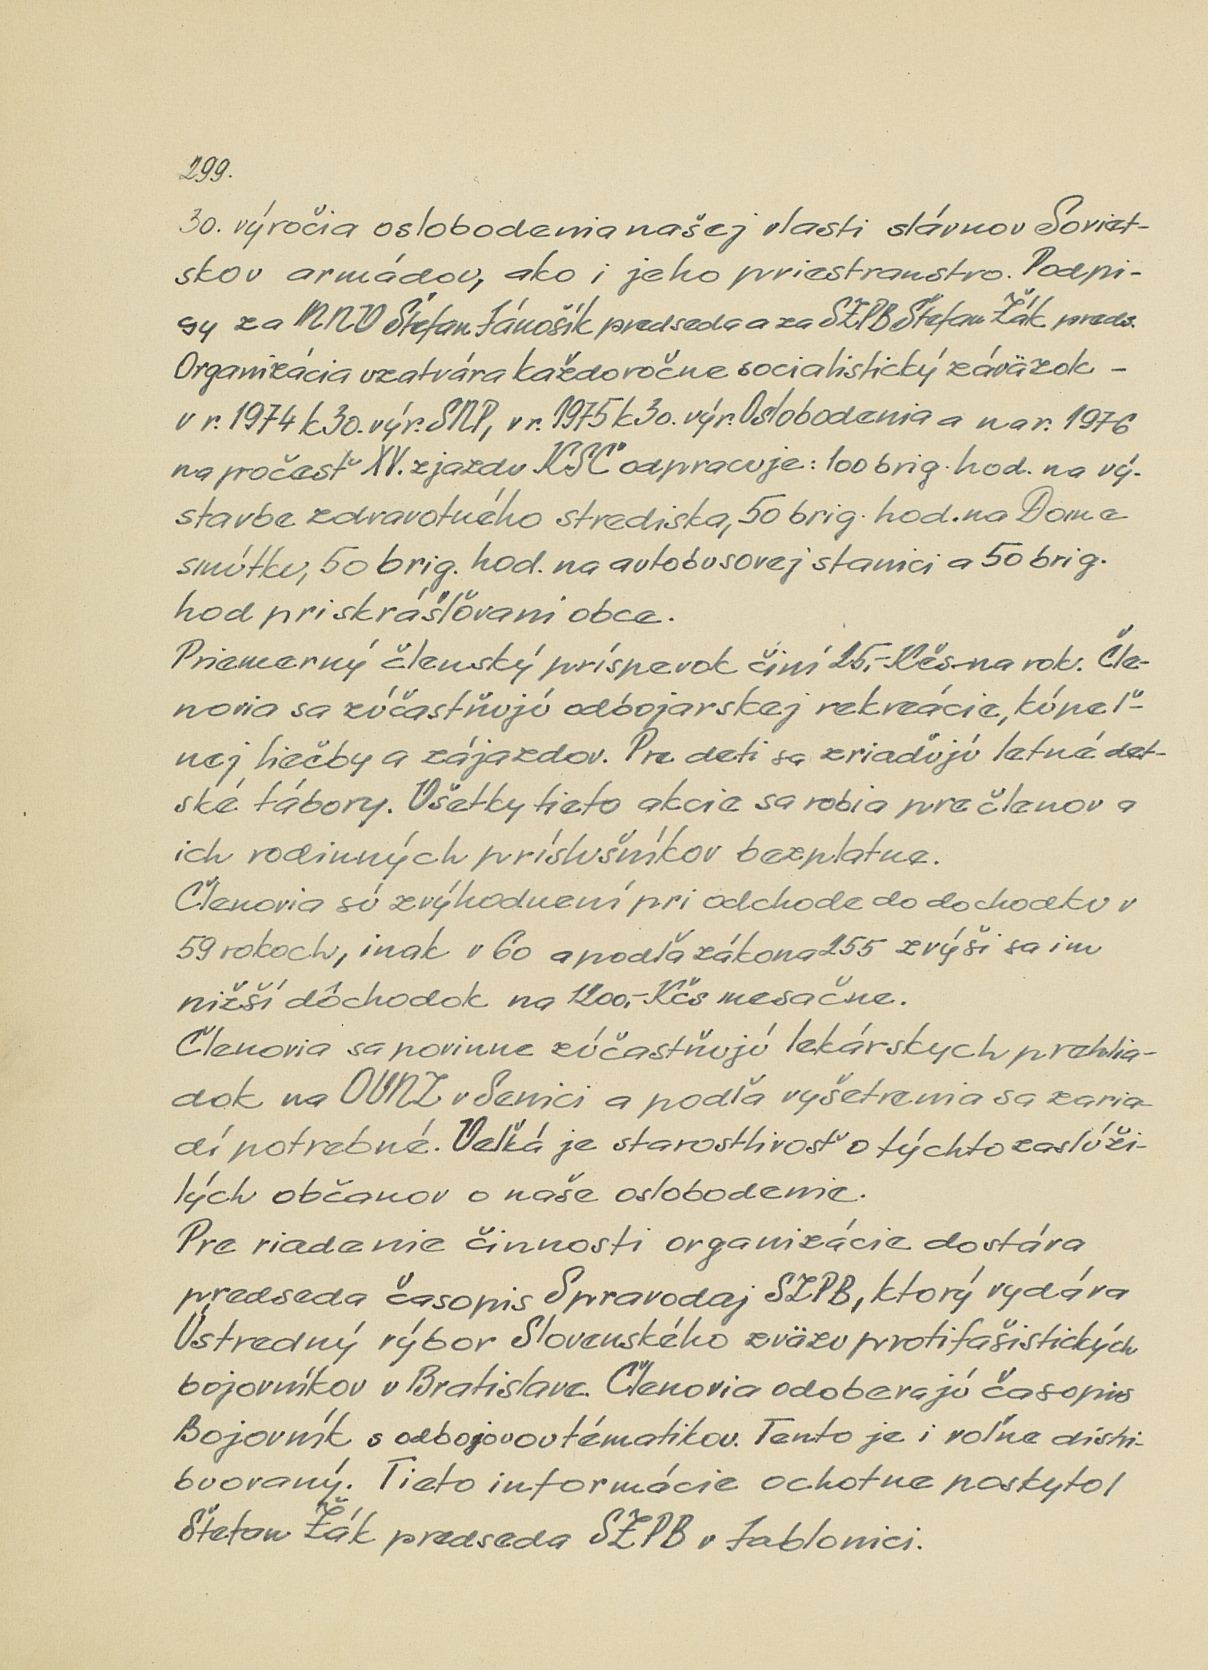 299.
30. výročia oslobodenia našej vlasti slávnou Soviet-
skou armádou, ako i jeho priestranstvo. Podpi-
sy za MNV Štefan Jánošík predseda a za SZPB Štefan Žák preds.
Organizácia uzatvára každoročne socialistický záväzok -
v r. 1974 k 30. výr. SNP, v r. 1975 k 30. výr. Oslobodenia a na r. 1976
na počesť XV. zjazdu KSČ odpracuje: 100 brig. hod. na vý-
stavbe zdravotného strediska, 50 brig. hod. na Dome
smútku, 50 brig. hod. na autobusovej stanici a 50 brig.
hod pri skrášľovaní obce.
Priemerný členský príspevok činí 25,- Kčs na rok. Čle-
novia sa zúčastňujú odbojarskej rekreácie, kúpeľ-
nej liečby a zájazdov. Pre deti sa zriaďujú letné det-
ské tábory. Všetky tieto akcie sa robia pre členov a
ich rodinných príslušníkov bezplatne.
Členovia sú zvýhodnení pri odchode do dochodku v
59 rokoch, inak v 60 a podľa zákona 255 zvýši sa im
nižší dôchodok na 1200,- Kčs mesačne.
Členovia sa povinne zúčastňujú lekárskych prehlia-
dok na OÚNZ v Senici a podľa vyšetrenia sa zaria-
dí potrebné. Veľká je starostlivosť o týchto zaslúži-
lých občanov o naše oslobodenie.
Pre riadenie činnosti organizácie dostáva
predseda časopis Spravodaj SZPB, ktorý vydáva
Ústredný výbor Slovenského zväzu protifašistických
bojovníkov v Bratislave. Členovia odoberajú časopis
Bojovník s odbojovou tématikou. Tento je i voľne distri-
buovaný. Tieto informácie ochotne poskytol
Štefan Žák predseda SZPB v Jablonici.